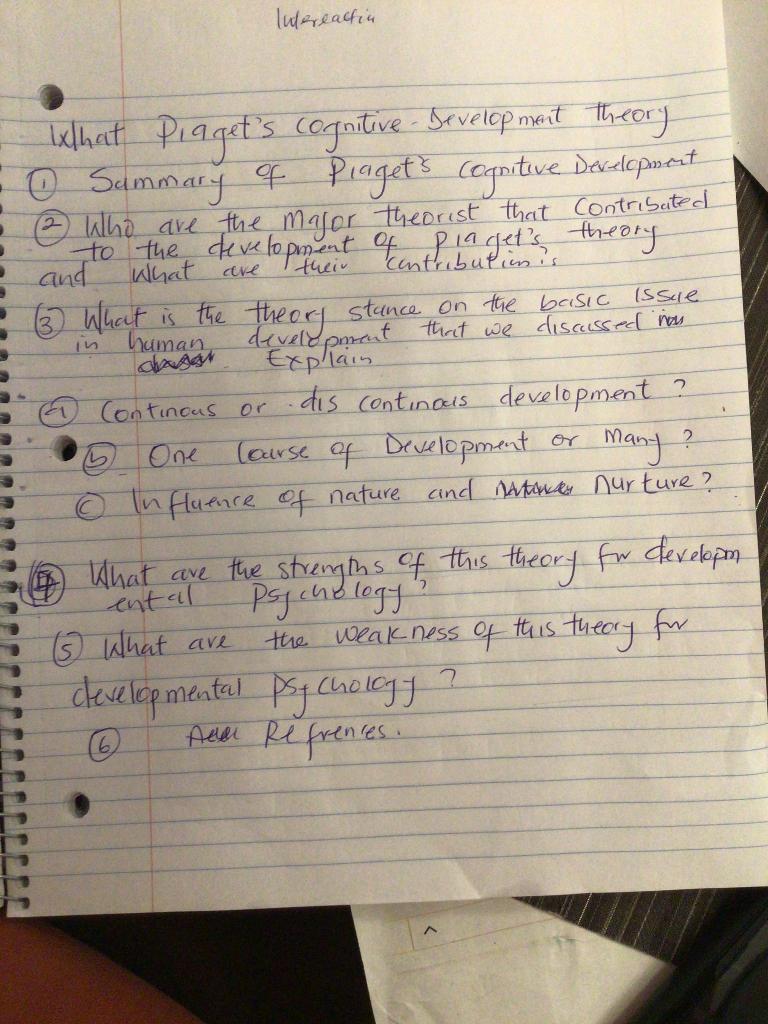 What Piaget's Cognitive-Development theory
① Summary of Piaget's Cognitive Development
② Who are the major theorist that contributed
to the development of Piaget's theory
and what are their contribution?s
③ What is the theory stance on the basic issue
in human development that we discussed in
Explain
Continous or discontinous development?
ⓑ One Course of Development or Many?
ⓒ Influence of nature and nurture?
④ What are the strengths of this theory for developm
ental Psychology?
⑤ What are the weakness of this theory for
developmental Psychology?
⑥ Refrences.